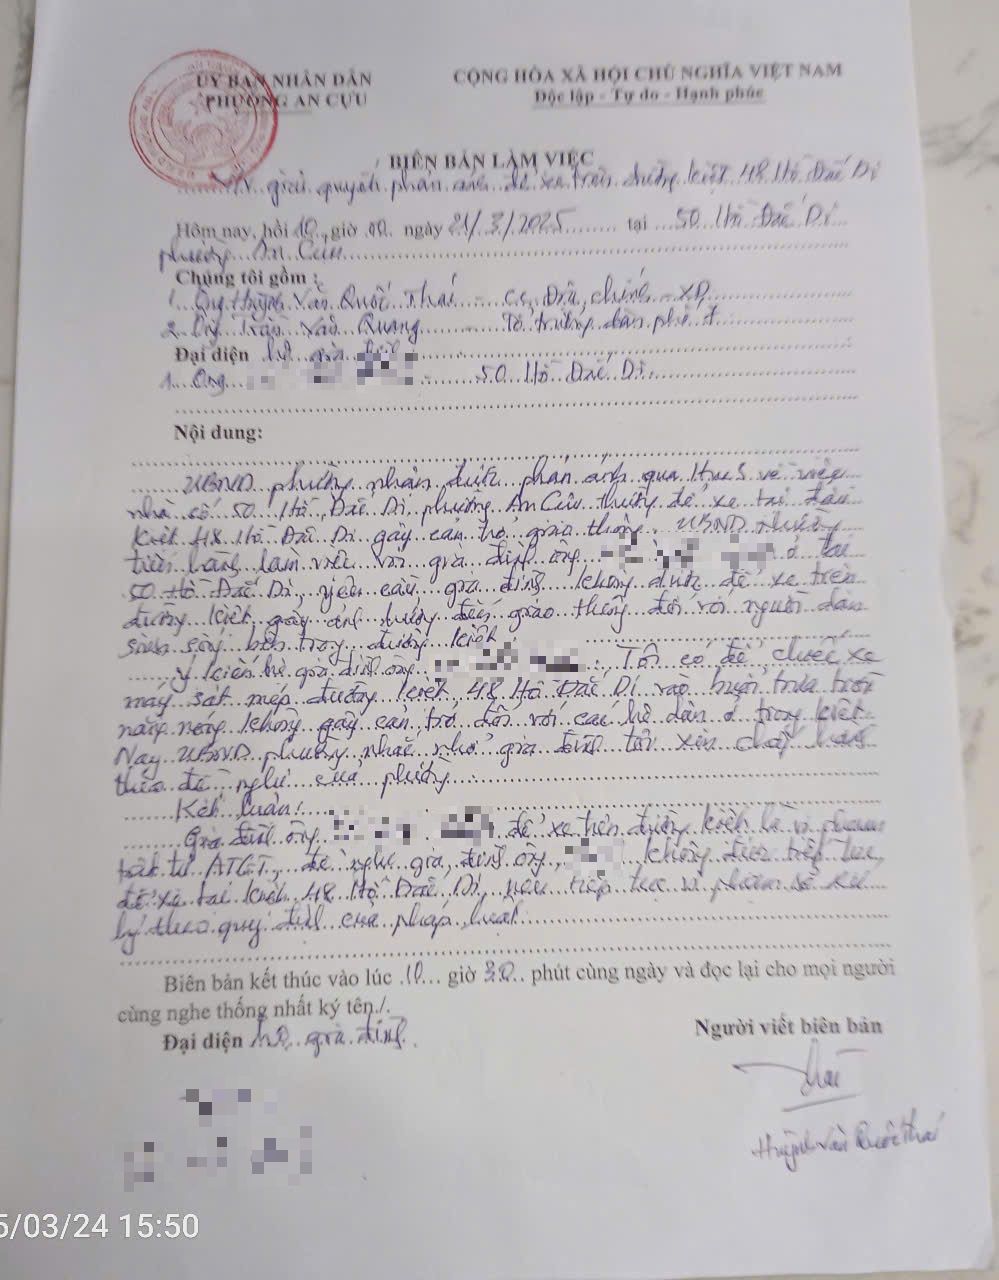 ỦY BAN NHÂN DÂN
PHƯỜNG AN CỰU
CỘNG HÒA XÃ HỘI CHỦ NGHĨA VIỆT NAM
Độc lập - Tự do - Hạnh phúc
BIÊN BẢN LÀM VIỆC
V/v giải quyết phản ánh để xe trên đường kiệt 48 Hồ Đắc Di
Hôm nay, hồi 10 giờ 00 ngày 21/3/2025 tại 50 Hồ Đắc Di
phường An Cựu
Chúng tôi gồm :
1. Ông Huỳnh Văn Quốc Thái - CC Địa chính - XD
2. Ông Trần Văn Quang Tổ trưởng dân phố
Đại diện hộ gia đình
1. Ông 50 Hồ Đắc Di.
Nội dung:
UBND phường nhận được phản ánh qua HueS về việc
nhà số 50 Hồ Đắc Di phường An Cựu thường để xe tại đầu
kiệt 48 Hồ Đắc Di gây cản trở giao thông. UBND phường
tiến hành làm việc với gia đình ông ở tại
50 Hồ Đắc Di, yêu cầu gia đình không được để xe trên
đường kiệt gây ảnh hưởng đến giao thông đối với người dân
sinh sống bên trong đường kiệt.
Ý kiến hộ gia đình ông : Tôi có để chiếc xe
máy sát mép đường kiệt 48 Hồ Đắc Di vào buổi trưa trời
nắng nóng không gây cản trở đối với các hộ dân ở trong kiệt.
Nay UBND phường nhắc nhở gia đình tôi xin chấp hành
theo đề nghị của phường.
Kết luận:
Gia đình ông để xe trên đường kiệt là vi phạm
trật tự ATGT, đề nghị gia đình ông không được tiếp tục
để xe tại kiệt 48 Hồ Đắc Di, nếu tiếp tục vi phạm sẽ xử
lý theo quy định của pháp luật.
Biên bản kết thúc vào lúc 10 giờ 30 phút cùng ngày và đọc lại cho mọi người
cùng nghe thống nhất ký tên./.
Đại diện hộ gia đình
Người viết biên bản
Thái
Huỳnh Văn Quốc Thái
5/03/24 15:50